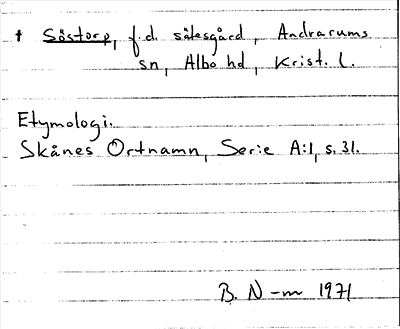 † Såstorp, f.d. sätesgård, Andrarums
sn, Albo hd, Krist. l.
Etymologi:
Skånes Ortnamn, Serie A:1, s. 31.
B. N-m 1971